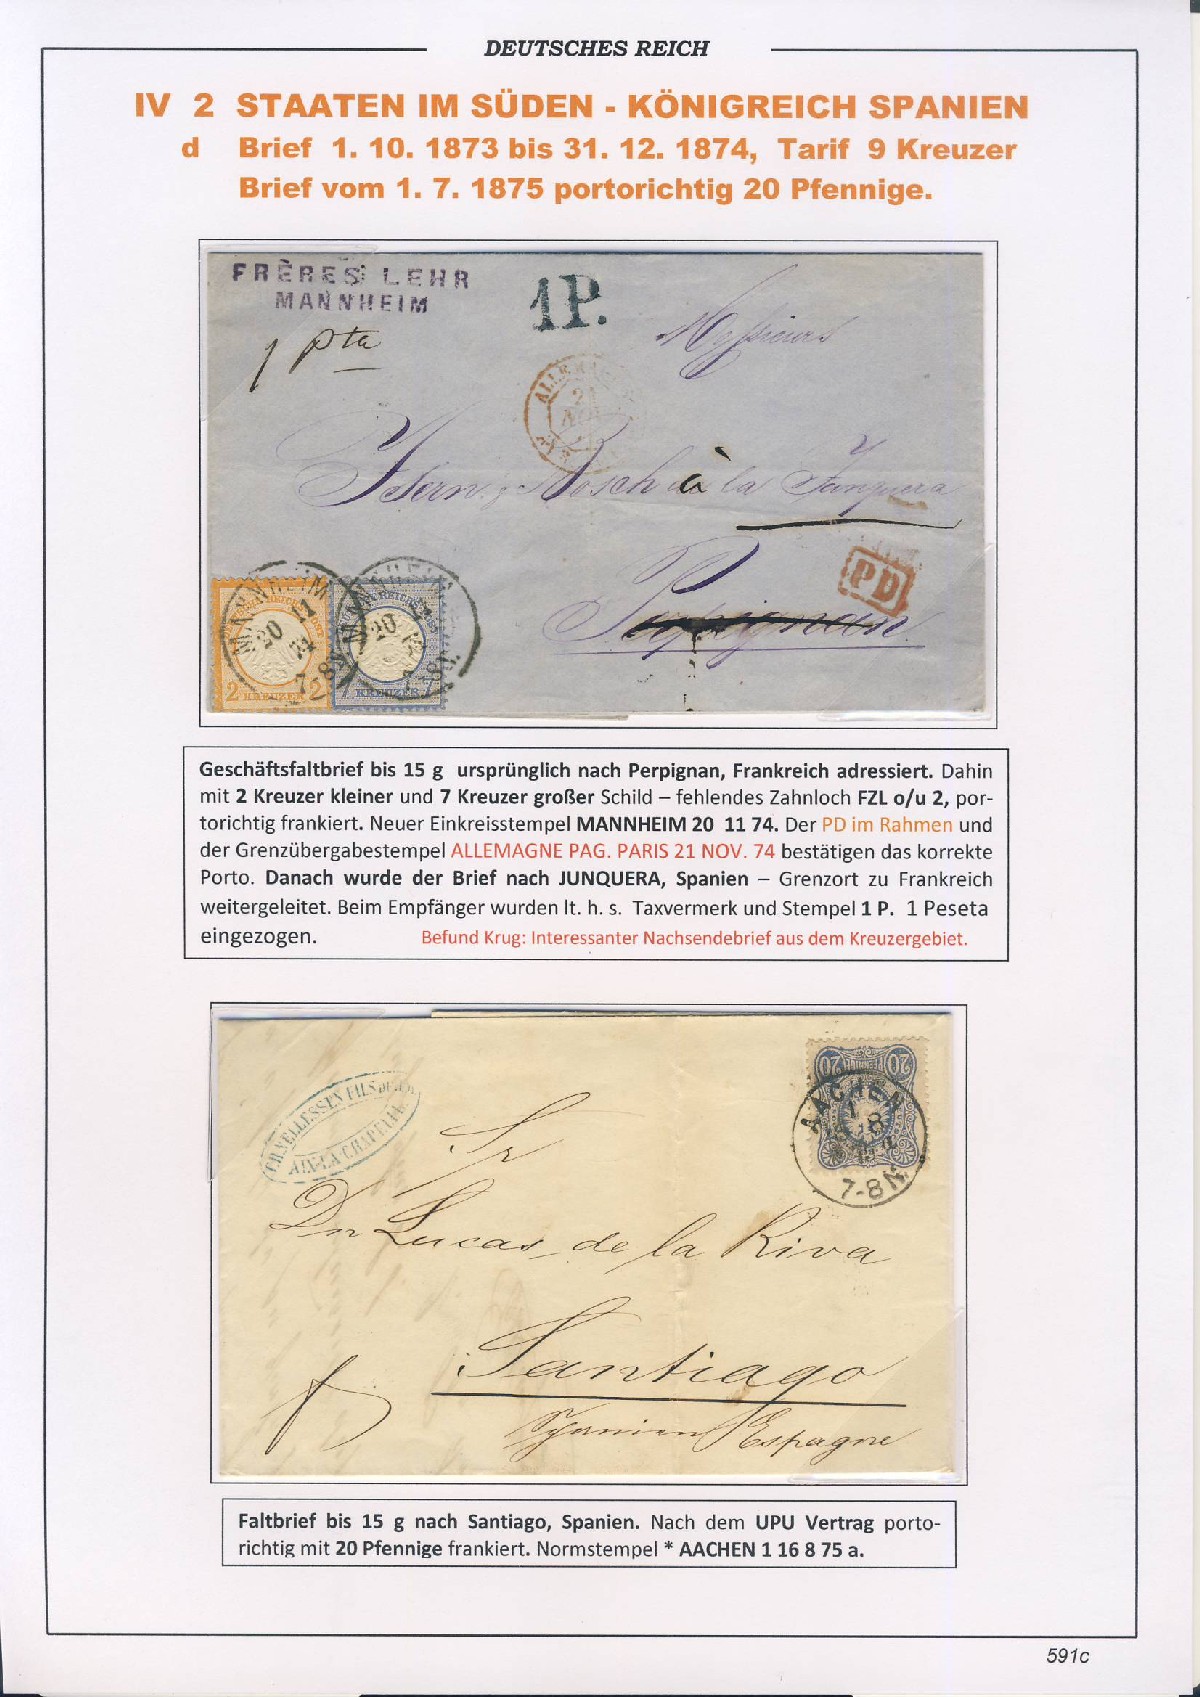 DEUTSCHES REICH
IV 2 STAATEN IM SÜDEN - KÖNIGREICH SPANIEN
d Brief 1. 10. 1873 bis 31. 12. 1874, Tarif 9 Kreuzer
Brief vom 1. 7. 1875 portorichtig 20 Pfennige.
FRÈRES LEHR
MANNHEIM
1 P.
1 pta
Messieurs
ALLEMAGNE
21
NOV
Isern & Bosch à la Junquera
PD
Perpignan
MANNHEIM
20 11
74
7-8N.
MANNHEIM
20 11
74
7-8N.
2 KREUZER 2
7 KREUZER 7
Geschäftsfaltbrief bis 15 g ursprünglich nach Perpignan, Frankreich adressiert. Dahin
mit 2 Kreuzer kleiner und 7 Kreuzer großer Schild – fehlendes Zahnloch FZL o/u 2, por-
torichtig frankiert. Neuer Einkreisstempel MANNHEIM 20 11 74. Der PD im Rahmen und
der Grenzübergabestempel ALLEMAGNE PAG. PARIS 21 NOV. 74 bestätigen das korrekte
Porto. Danach wurde der Brief nach JUNQUERA, Spanien – Grenzort zu Frankreich
weitergeleitet. Beim Empfänger wurden lt. h. s. Taxvermerk und Stempel 1 P. 1 Peseta
eingezogen. Befund Krug: Interessanter Nachsendebrief aus dem Kreuzergebiet.
20 PFENNIGE 20
AACHEN
1
8
7-8N.
NELLESSEN FILS
AIX-LA-CHAPELLE
Sr
Dn Lucas de la Riva
Santiago
Spanien Espagne
Faltbrief bis 15 g nach Santiago, Spanien. Nach dem UPU Vertrag porto-
richtig mit 20 Pfennige frankiert. Normstempel * AACHEN 1 16 8 75 a.
591c